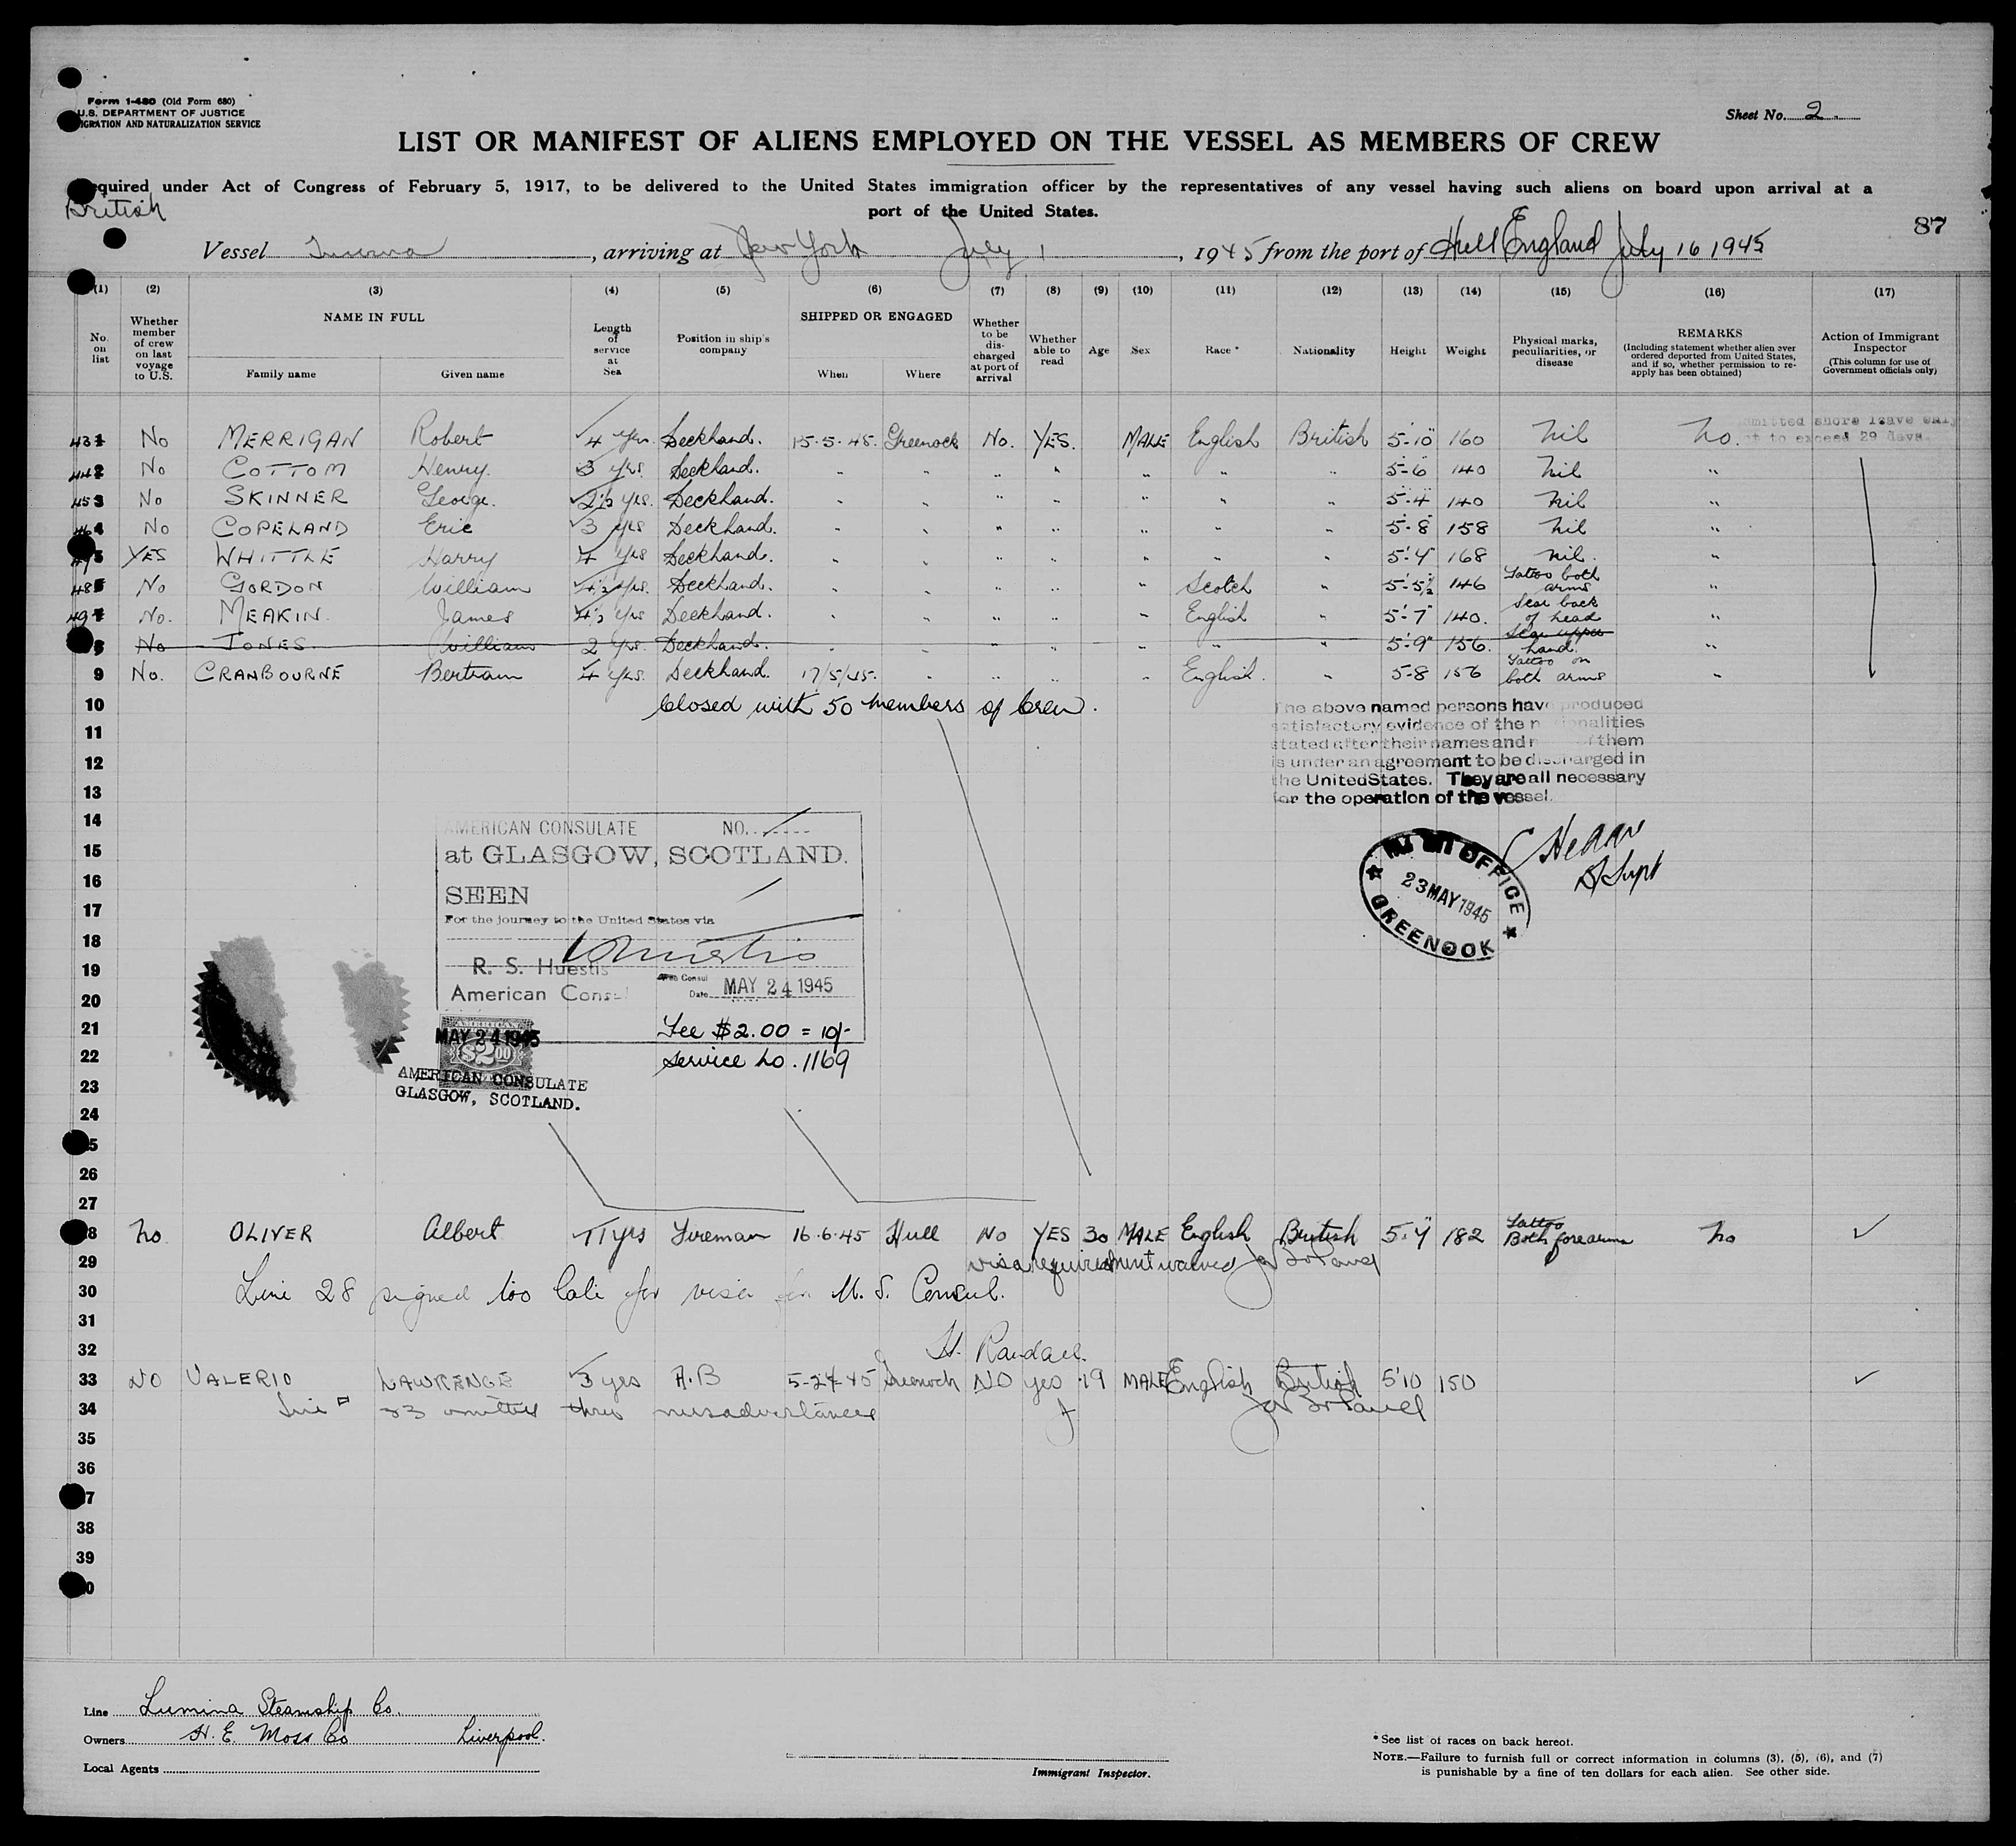 Form 1-480 (Old Form 680)
U.S. DEPARTMENT OF JUSTICE
IGRATION AND NATURALIZATION SERVICE
Sheet No. 2
LIST OR MANIFEST OF ALIENS EMPLOYED ON THE VESSEL AS MEMBERS OF CREW
quired under Act of Congress of February 5, 1917, to be delivered to the United States immigration officer by the representatives of any vessel having such aliens on board upon arrival at a
port of the United States.
British
87
Vessel , arriving at New York July 1 , 1945 from the port of Hull England July 16 1945
(1) (2) (3) (4) (5) (6) (7) (8) (9) (10) (11) (12) (13) (14) (15) (16) (17)
No. on list
Whether member of crew on last voyage to U.S.
NAME IN FULL
Family name Given name
Length of service at Sea
Position in ship's company
SHIPPED OR ENGAGED
When Where
Whether to be discharged at port of arrival
Whether able to read
Age
Sex
Race *
Nationality
Height
Weight
Physical marks, peculiarities, or disease
REMARKS
(Including statement whether alien ever ordered deported from United States, and if so, whether permission to re-apply has been obtained)
Action of Immigrant Inspector
(This column for use of Government officials only)
mitted shore leave only
t to exceed 29 days.
43 1 No MERRIGAN Robert 4 Yrs. Deckhand. 15-5-45. Greenock No. YES. MALE English British 5-10" 160 Nil No.
44 2 No COTTOM Henry. 3 yrs. Deckhand. " " " " " " " 5-6" 140 Nil "
45 3 No SKINNER George. 2½ yrs. Deckhand. " " " " " " " 5-4" 140 Nil "
4 No COPELAND Eric 3 yrs Deckhand. " " " " " " " 5-8" 158 Nil "
YES WHITTLE Harry 4 yrs Deckhand. " " " " " " " 5-4" 168 Nil. "
48 No GORDON William 4½ yrs. Deckhand. " " " " " Scotch " 5-5½ 146 Tattoo both arms "
49 No. MEAKIN. James 4½ yrs Deckhand. " " " " " English " 5-7" 140. Scar back of head "
No JONES. William 2 yrs. Deckhand. " " " " " " " 5-9" 156. Scar upper hand. "
9 No. CRANBOURNE Bertram 4 yrs. Deckhand. 17/5/45. " " " " English. " 5-8 156 Tattoo on both arms "
10 Closed with 50 members of Crew.
The above named persons have produced
satisfactory evidence of the n ionalities
stated after their names and n of them
is under an agreement to be discharged in
the United States. They are all necessary
for the operation of the vessel.
11
12
13
14
15
16
17
18
19
20
21
22
23
24
5
26
27
AMERICAN CONSULATE NO.
at GLASGOW, SCOTLAND.
SEEN
For the journey to the United States via
R. S. Huestis
American Consul
Consul
Date MAY 24 1945
Fee $2.00 = 10/-
Service No. 1169
MAY 24 1945
AMERICAN
$2.00
AMERICAN CONSULATE
GLASGOW, SCOTLAND.
OFFICE
23 MAY 1945
GREENOCK
Supt
8 No OLIVER Albert 11 yrs Fireman 16-6-45 Hull No YES 30 MALE English British 5-4" 182 Tattoo Both forearms No
29 visa requirement waived
30 Line 28 signed too late for visa U. S. Consul.
31
32 H. Randall.
33 NO VALERIO LAWRENCE 3 yes A.B 5-24-45 Greenock NO yes 19 MALE English British 5'10 150
34 Line 33 omitted thru misadvertance
35
36
7
38
39
0
Line Lumina Steamship Co.
Owners H. E. Moss Co Liverpool.
Local Agents
Immigrant Inspector.
* See list of races on back hereof.
NOTE.—Failure to furnish full or correct information in columns (3), (5), (6), and (7)
is punishable by a fine of ten dollars for each alien. See other side.